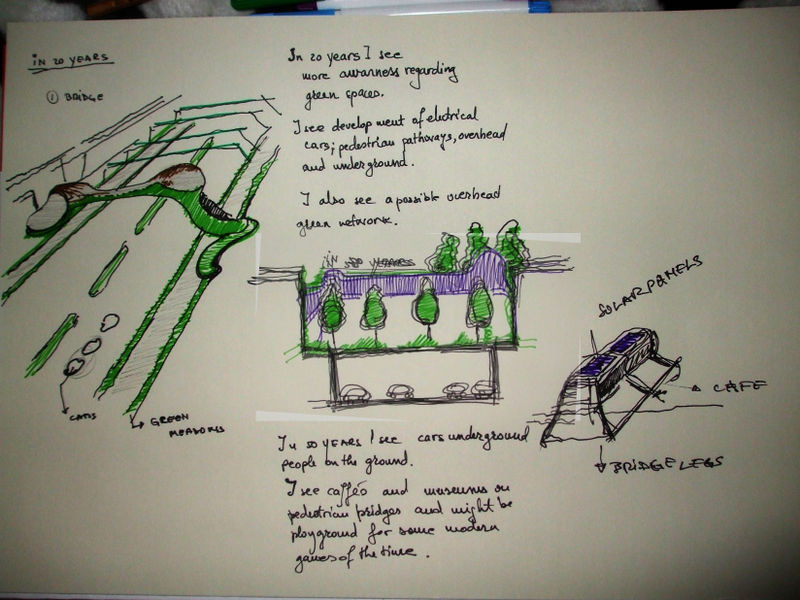 in 20 YEARS
① BRIDGE
In 20 years I see
more awarness regarding
green spaces.
I see development of electrical
cars; pedestrian pathways, overhead
and underground.
I also see a possible overhead
green network.
CARS
GREEN
MEADOWS
iN 50 YEARS
SOLAR PANELS
CAFE
BRIDGE LEGS
In 50 years I see cars underground
people on the ground.
I see caffés and museums on
pedestrian bridges and might be
playground for some modern
games of the time.